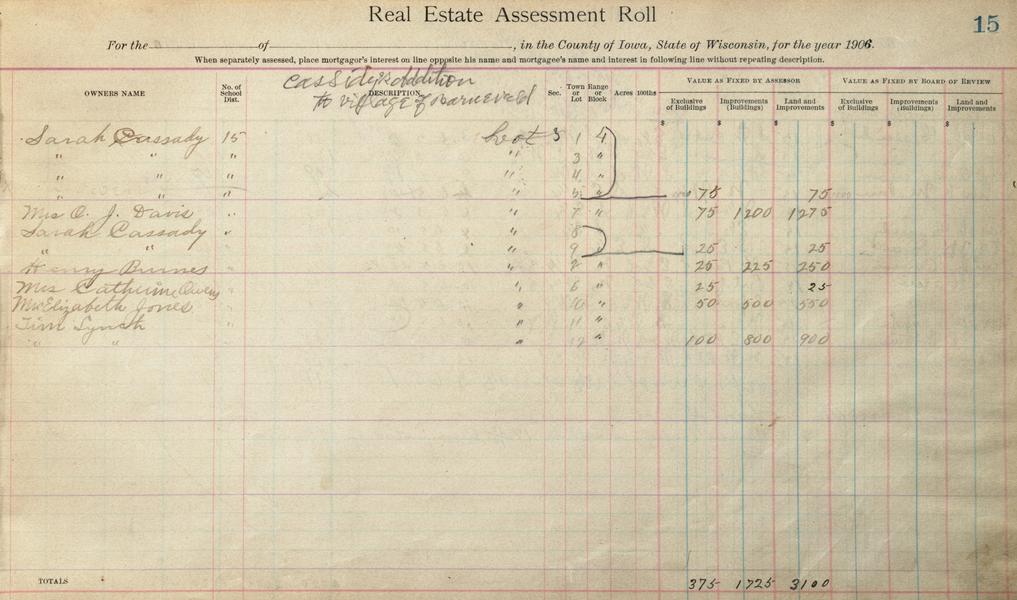 Real Estate Assessment Roll
15
For the of , in the County of Iowa, State of Wisconsin, for the year 1906.
When separately assessed, place mortgagor's interest on line opposite his name and mortgagee's name and interest in following line without repeating description.
OWNERS NAME No. of School Dist. DESCRIPTION Sec. Town or Lot Range or Block Acres 100ths VALUE AS FIXED BY ASSESSOR VALUE AS FIXED BY BOARD OF REVIEW
Exclusive of Buildings Improvements (Buildings) Land and Improvements Exclusive of Buildings Improvements (Buildings) Land and Improvements
Addition
to village of Barneveld
$ $ $ $ $ $
Sarah Cassady 15 Lots 1 4
" " " " 3 "
" " " " 4 "
" " " " 5 " 75 75
Mrs O. J. Davis " " 7 " 75 1200 1275
Sarah Cassady " " 8
" " " 9 " 25 25
Henry " " 2 " 25 225 250
Mrs Catherine Owens " " 6 " 25 25
Mrs Elizabeth Jones " " 10 " 50 500 550
Tim Lynch " " 11 "
" " " " 12 " 100 800 900
TOTALS 375 1725 3100